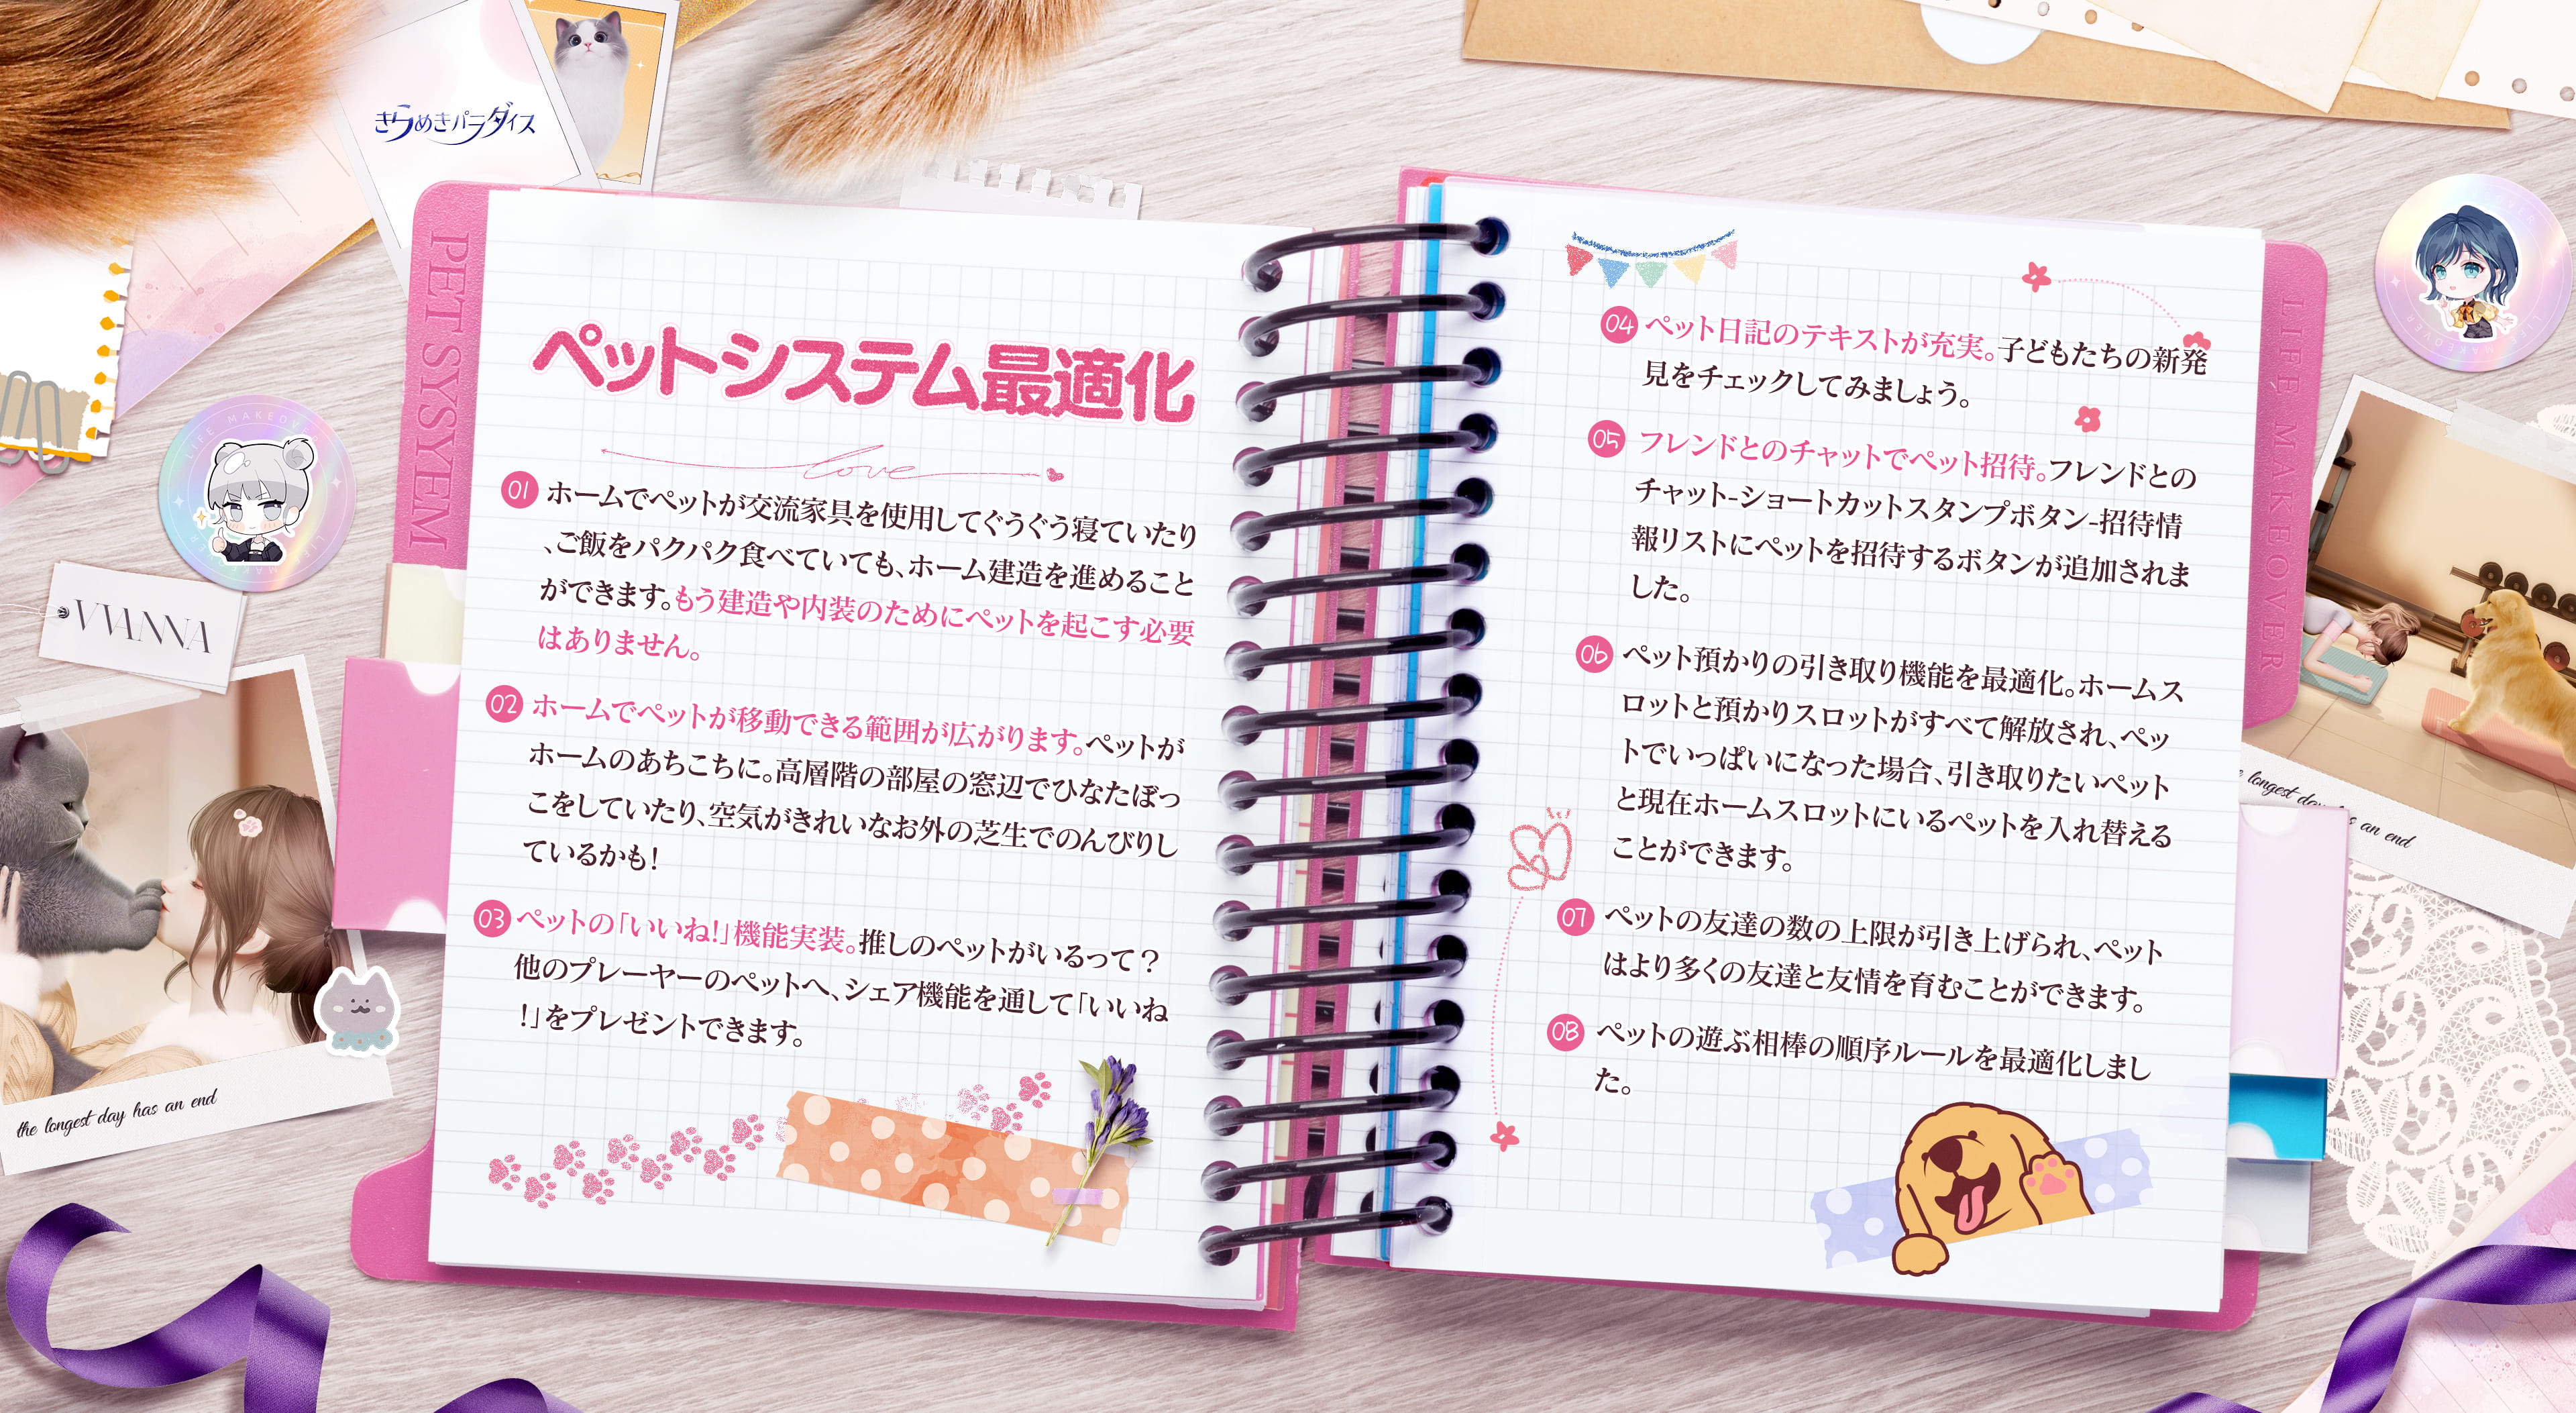 きらめきパラダイス
PET SYSYEM
LIFE MAKEOVER
VIANNA
the longest day has an end
ペットシステム最適化
love
01 ホームでペットが交流家具を使用してぐうぐう寝ていたり
、ご飯をパクパク食べていても、ホーム建造を進めること
ができます。もう建造や内装のためにペットを起こす必要
はありません。
02 ホームでペットが移動できる範囲が広がります。ペットが
ホームのあちこちに。高層階の部屋の窓辺でひなたぼっ
こをしていたり、空気がきれいなお外の芝生でのんびりし
ているかも!
03 ペットの「いいね!」機能実装。推しのペットがいるって?
他のプレーヤーのペットへ、シェア機能を通して「いいね
!」をプレゼントできます。
04 ペット日記のテキストが充実。子どもたちの新発
見をチェックしてみましょう。
05 フレンドとのチャットでペット招待。フレンドとの
チャット-ショートカットスタンプボタン-招待情
報リストにペットを招待するボタンが追加されま
した。
06 ペット預かりの引き取り機能を最適化。ホームス
ロットと預かりスロットがすべて解放され、ペッ
トでいっぱいになった場合、引き取りたいペット
と現在ホームスロットにいるペットを入れ替える
ことができます。
07 ペットの友達の数の上限が引き上げられ、ペット
はより多くの友達と友情を育むことができます。
08 ペットの遊ぶ相棒の順序ルールを最適化しまし
た。
LIFE MAKEOVER
LIFE MAKEOVER
longest day has an end